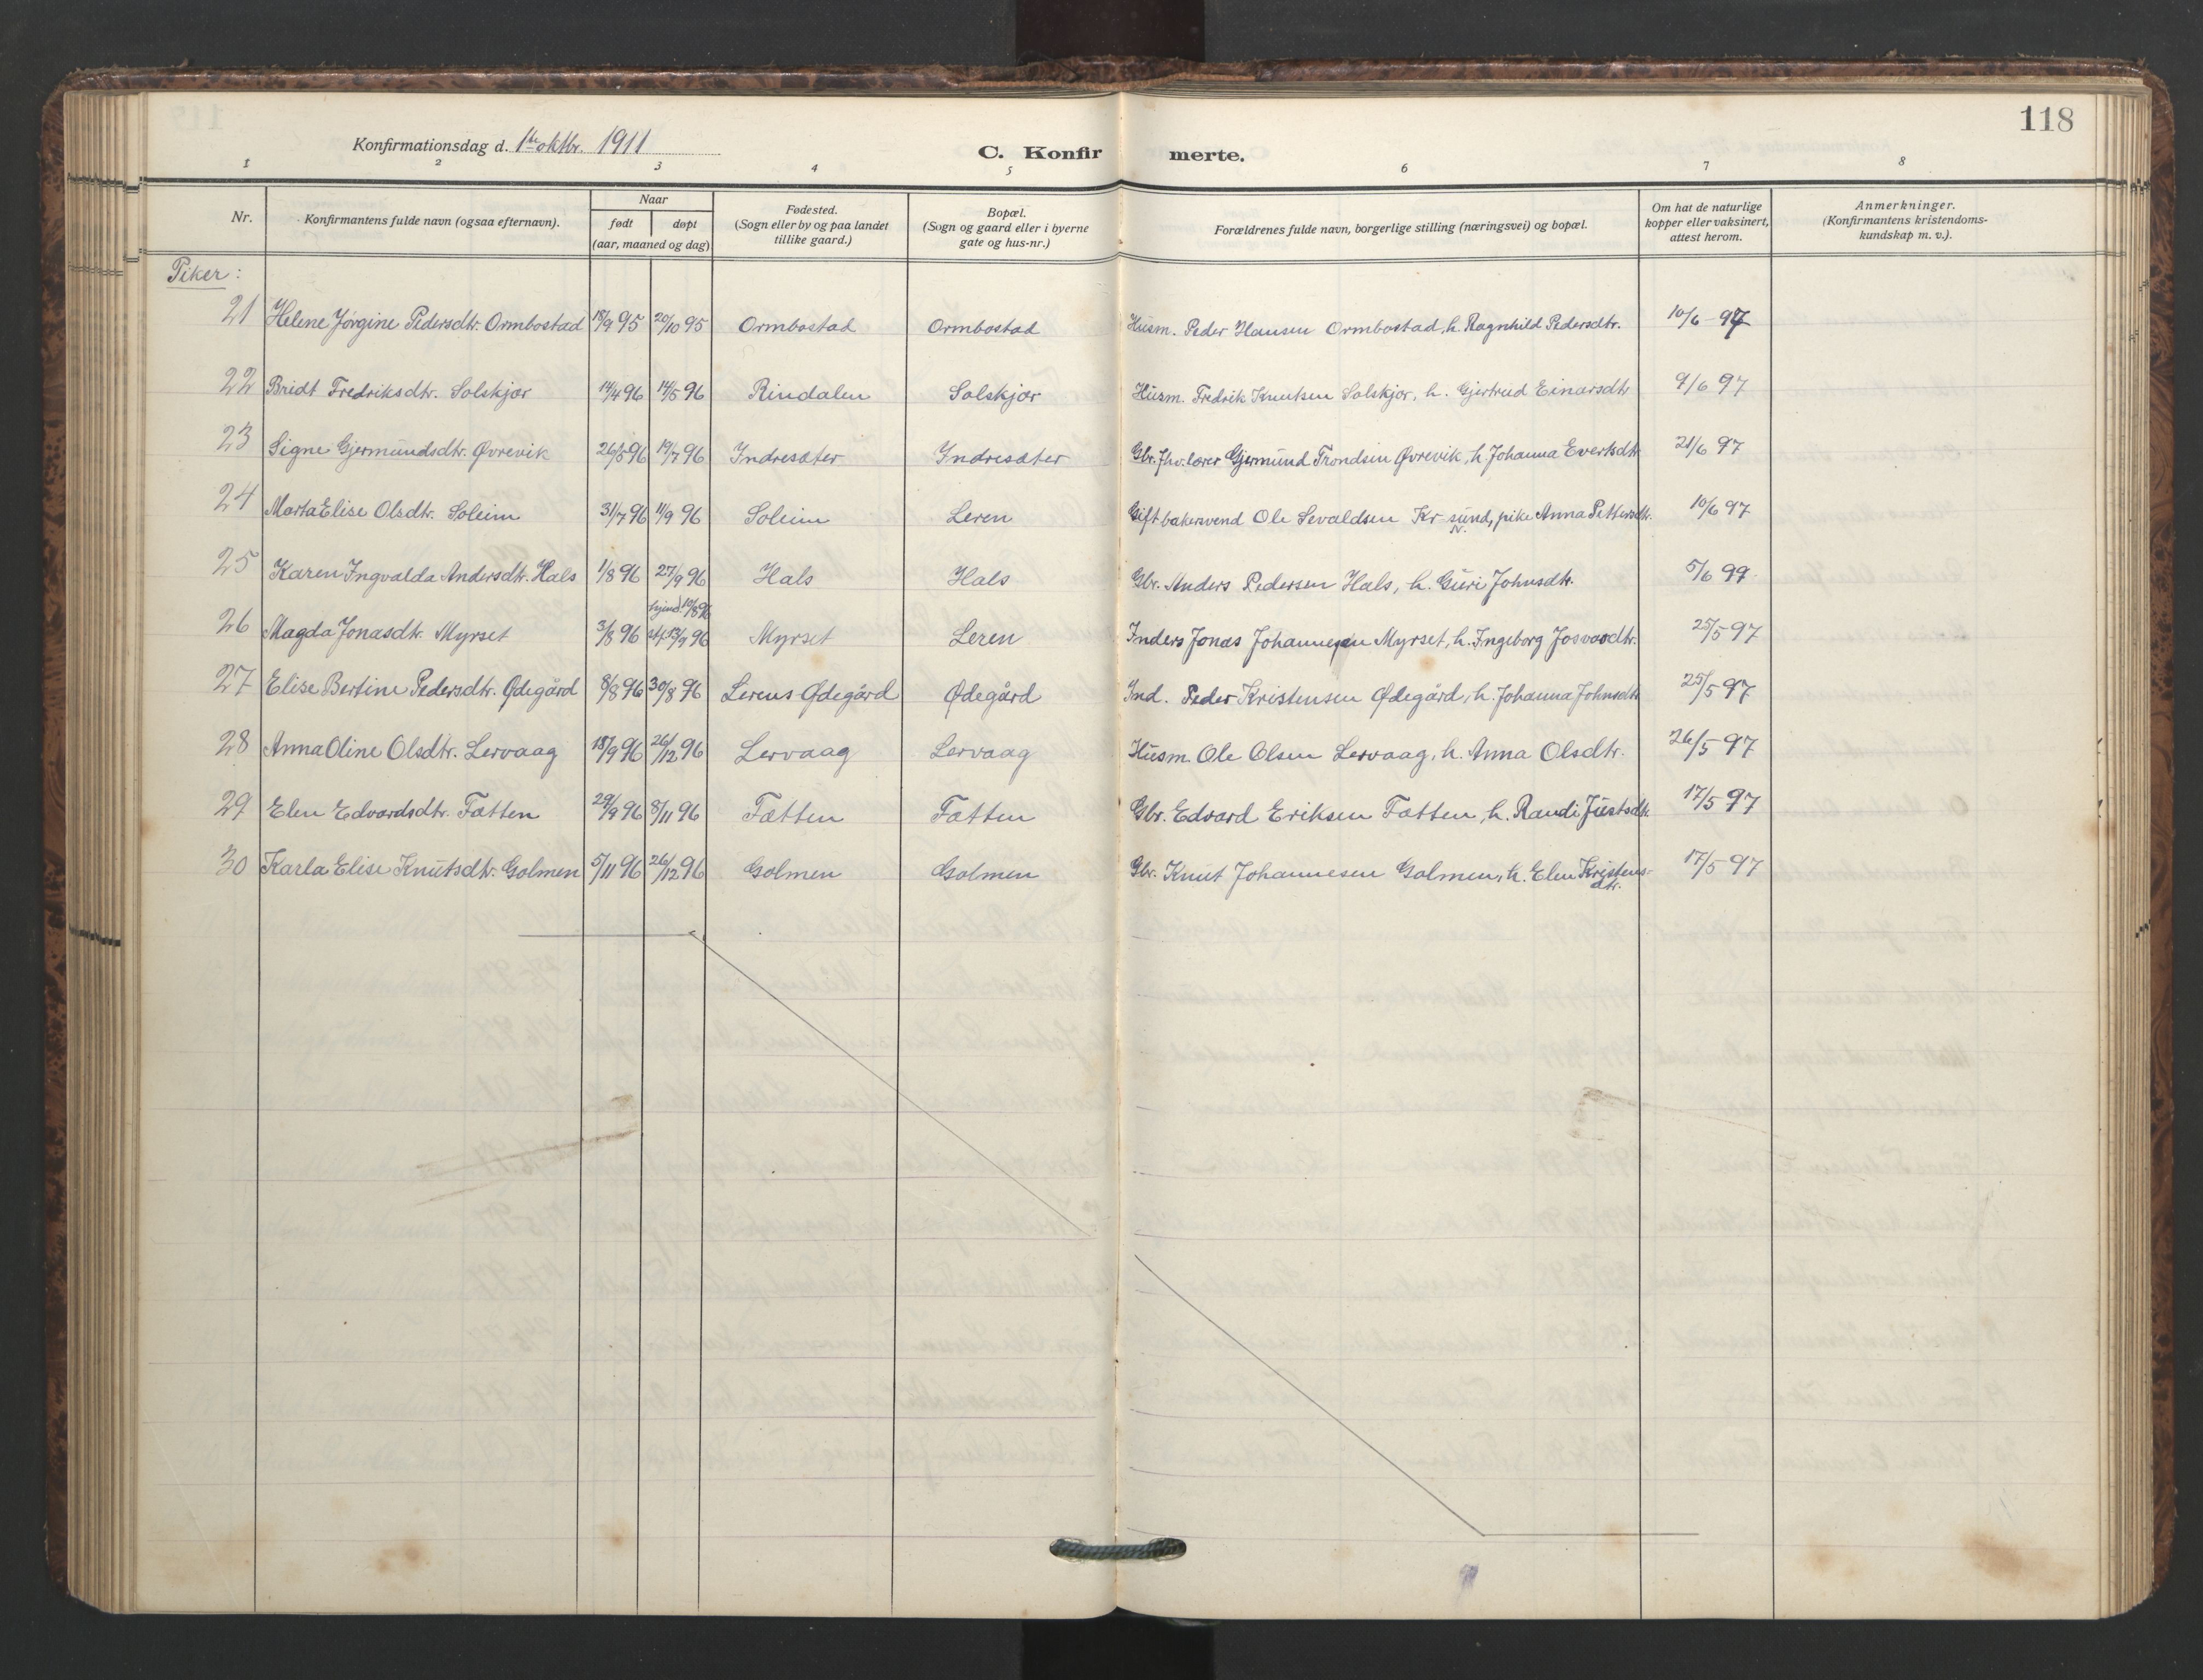 118
Konfirmationsdag d. 1ste oktbr. 1911
C. Konfir merte.
1 2 3 4 5 6 7 8
Nr. Konfirmantens fulde navn (ogsaa efternavn). Naar født døpt (aar, maaned og dag) Fødested. (Sogn eller by og paa landet tillike gaard.) Bopæl. (Sogn og gaard eller i byerne gate og hus-nr.) Forældrenes fulde navn, borgerlige stilling (næringsvei) og bopæl. Om hat de naturlige kopper eller vaksinert, attest herom. Anmerkninger. (Konfirmantens kristendoms-kundskap m. v.).
Piker:
21 Helene Jørgine Pedersdtr. Ormbostad 18/9 95 20/10 95 Ormbostad Ormbostad Husm. Peder Hansen Ormbostad, h. Ragnhild Pedersdtr. 10/6 97
22 Bridt Fredriksdtr. Solskjør 14/4 96 14/5 96 Rindalen Solskjør Husm. Fredrik Knutsen Solskjør, h. Gjertrud Einarsdtr 9/6 97
23 Signe Gjermundsdtr. Øvrevik 26/5 96 19/7 96 Indresæter Indresæter Gbr. fhv. lærer Gjermund Trondsen Øvrevik, h. Johanna Evertsdtr 21/6 97
24 Marta Elise Olsdtr. Soleim 31/7 96 11/9 96 Soleim Leren Gift bakersvend Ole Sevaldsen Kr.sund N., pike Anna Pettersdtr. 10/6 97
25 Karen Ingvalda Andersdtr. Hals 1/8 96 27/9 96 Hals Hals Gbr. Anders Pedersen Hals, h. Guri Johnsdtr. 5/6 99
26 Magda Jonasdtr. Myrset 3/8 96 hjmd. 10/8 96 13/9 96 Myrset Leren Inders. Jonas Johannesen Myrset, h. Ingeborg Josvasdtr. 25/5 97
27 Elise Bertine Pedersdtr. Ødegård 8/8 96 30/8 96 Lerens Ødegård Ødegård Ind. Peder Kristensen Ødegård, h. Johanna Johnsdtr 25/5 97
28 Anna Oline Olsdtr. Lervaag 18/9 96 26/12 96 Lervaag Lervaag Husm. Ole Olsen Lervaag, h. Anna Olsdtr. 26/5 97
29 Elen Edvardsdtr. Fætten 29/9 96 8/11 96 Fætten Fætten Gbr. Edvard Eriksen Fætten, h. Randi Justsdtr. 17/5 97
30 Karla Elise Knutsdtr. Golmen 5/11 96 26/12 96 Golmen Golmen Gbr. Knut Johannesen Golmen, h. Elen Kristens-
dtr. 17/5 97